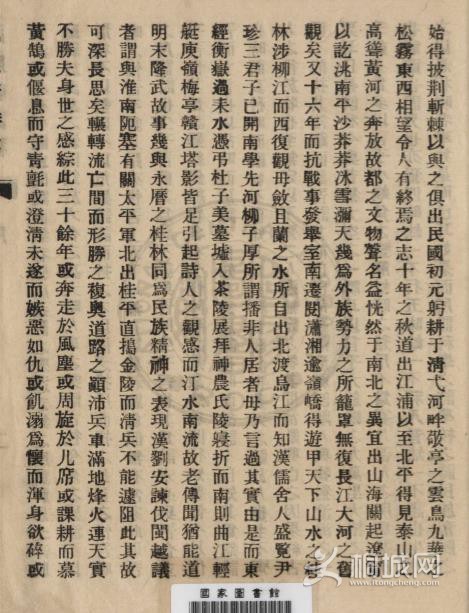 始得披荆斬棘以與之俱出民國初元躬耕于清弋河畔敬亭之雲鳥九華之
松霧東西相望令人有終焉之志十年之秋道出江浦以至北平得見泰山之
高聳黃河之奔放故都之文物聲名益恍然于南北之異宜出山海關起遼
以訖洮南平沙莽莽冰雪瀰天幾爲外族勢力之所籠罩無復長江大河之舊
觀矣又十六年而抗戰事發舉室南遷閱瀟湘逾嶺嶠得遊甲天下山水之桂
林涉柳江而西復觀毋斂且蘭之水所自出北渡烏江而知漢儒舍人盛覽尹
珍三君子已開南學先河柳子厚所謂播非人居者毋乃言過其實由是而東
經衡嶽過耒水憑弔杜子美墓墟入茶陵展拜神農氏陵寢折而南則曲江輕
艇庾嶺梅亭贛江塔影皆足引起詩人之觀感而汀水南流故老傳聞猶能道
明末隆武故事幾與永曆之桂林同爲民族精神之表現漢劉安諫伐閩越議
者謂與淮南阨塞有關太平軍北出桂平直搗金陵而清兵不能遠阻此其故
可深長思矣輾轉流亡間而形勝之複奧道路之顛沛兵車滿地烽火連天實
不勝夫身世之感綜此三十餘年或奔走於風塵或周旋於几席或課耕而慕
黃鵠或偃息而守青氈或澄淸未遂而嫉惡如仇或飢溺爲懷而渾身欲碎或
國家圖書館
桐城网
www.itongcheng.com